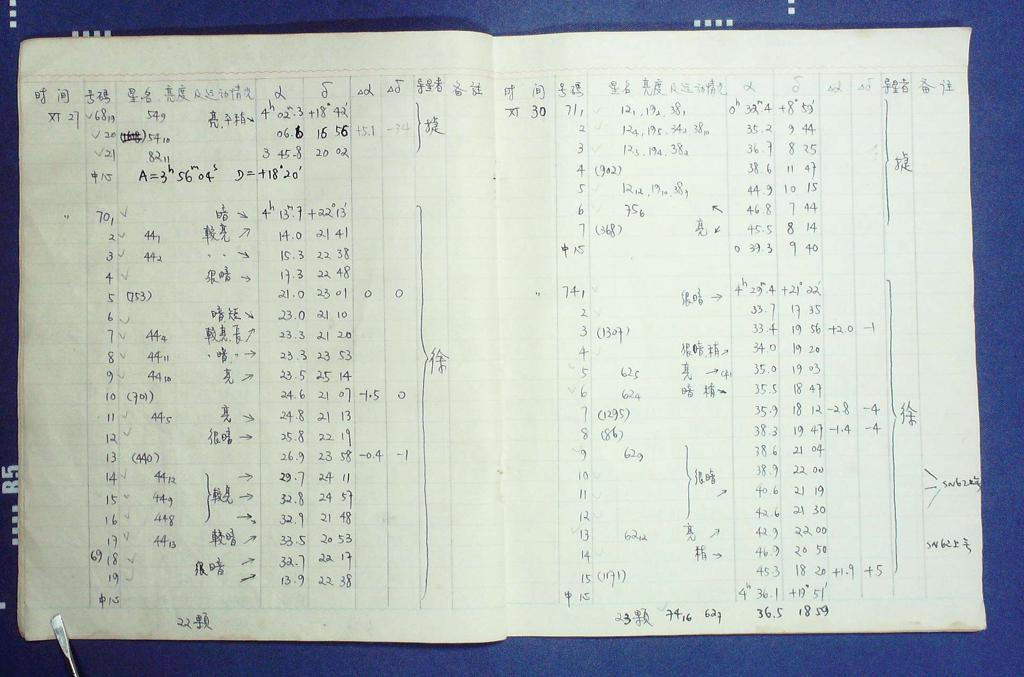 时 间 号码 星名 亮度及运动情况 α δ Δα Δδ 导星者 备注
XI 27 √68₁₉ 54₉ 亮,子稍↘ 4ʰ 02ᵐ.3 +18° 42'
√20 54₁₀ 06.6 16 56 +5.1 -34
√21 82₁₁ 3 45.8 20 02
中心 A=3ʰ 56ᵐ 04ˢ D=+18°20'
" 70₁ √ 暗 ↘ 4ʰ 13ᵐ.7 +22°13'
2 √ 44₁ 较亮 ↗ 14.0 21 41
3 √ 44₂ 〃 ↘ 15.3 22 38
4 √ 很暗 → 17.3 22 48
5 (753) 21.0 23 01 0 0
6 √ 暗短 ↘ 23.0 21 10
7 √ 44₄ 较亮,长↗ 23.3 21 20
8 √ 44₁₁ 暗 → 23.3 23 53
9 √ 44₁₀ 亮 → 23.5 25 14
10 (701) 24.6 21 07 -1.5 0
11 √ 44₅ 亮 → 24.8 21 13
12 √ 很暗 → 25.8 22 19
13 (440) 26.9 23 58 -0.4 -1
14 √ 44₁₂ → 29.7 24 11
15 √ 44₉ 较亮 → 32.8 24 57
16 √ 44₈ → 32.9 21 48
17 √ 44₁₃ 较暗 ↗ 33.5 20 53
69 18 √ 很暗 → 32.7 22 17
19 √ ↗ 13.9 22 38
中心
徐
22颗
时 间 号码 星名 亮度及运动情况 α δ Δα Δδ 导星者 备注
XI 30 71₁ √ 12₁,19₂,38₁ 0ʰ 32ᵐ.4 +8° 59'
2 √ 12₄,19₅,34₂,38₁₀ 35.2 9 44
3 √ 12₃,19₄,38₂ 36.7 8 25
4 (902) 38.6 11 47
5 √ 12₁₂,19₁₀,38₉ 44.9 10 15
6 √ 75₆ ↖ 46.8 7 44
7 (368) 亮 ↙ 45.5 8 14
中心 0 39.3 9 40
" 74₁ √ 很暗 → 4ʰ 29ᵐ.4 +21° 22'
2 √ 33.7 17 35
3 (1307) 33.4 19 56 +2.0 -1
4 √ 很暗稍↗ 34.0 19 20
5 √ 62₅ 亮 → 35.0 19 03
6 √ 62₄ 暗 稍↘ 35.5 18 47
7 (1295) 35.9 18 12 -2.8 -4
8 (86) 38.3 19 47 -1.4 -4
9 √ 62₉ 38.6 21 04
10 √ 很暗 38.9 22 00
11 √ ↗ 40.6 21 19
12 √ 42.6 21 30
13 √ 62₁₂ 亮 ↗ 42.9 22 00
14 √ 稍 → 46.9 20 50
15 (1171) 45.3 18 20 +1.9 +5
中心 4ʰ 36.1 +19° 51'
徐
23颗 74₁₆ 62₇ 36.5 18 59